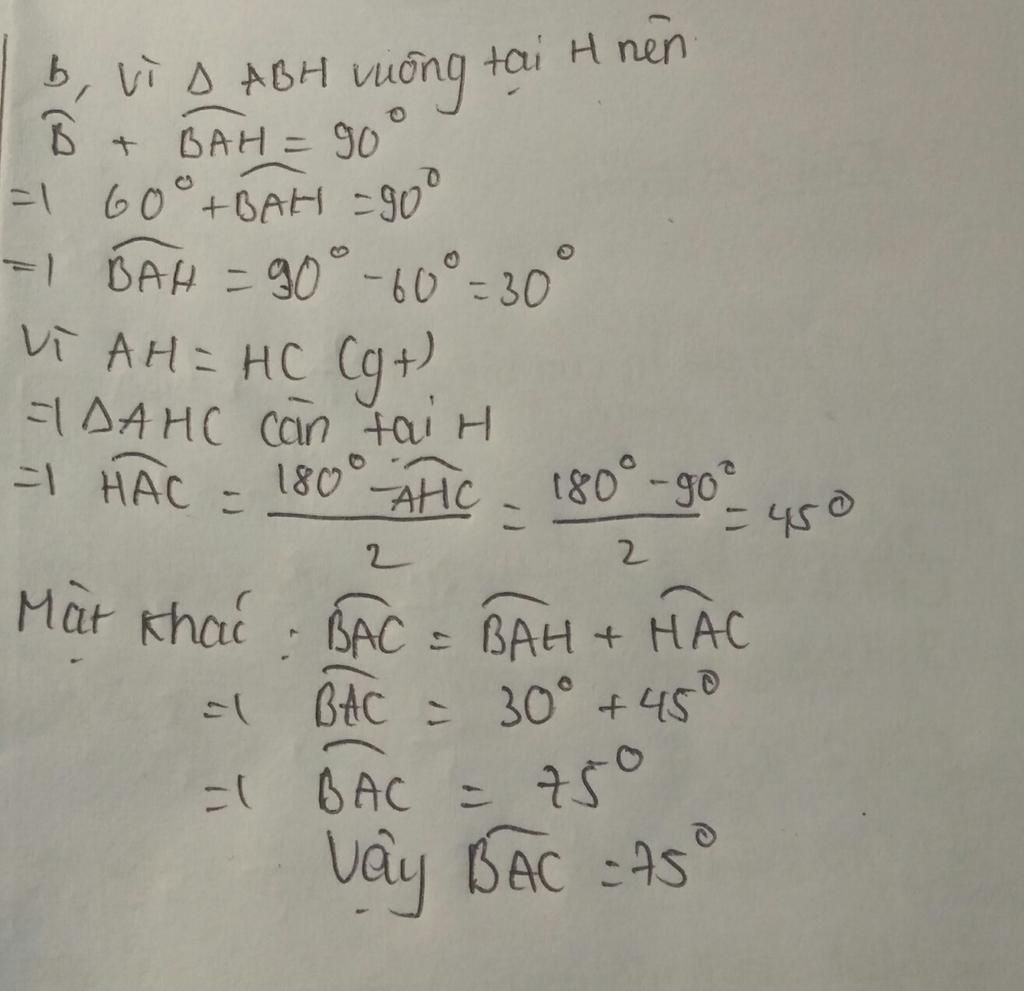 b, Vì Δ ABH vuông tại H nên
B̂ + BAĤ = 90°
=> 60° + BAĤ = 90°
=> BAĤ = 90° - 60° = 30°
Vì AH = HC (gt)
=> ΔAHC cân tại H
=> HAĈ = (180° - AHĈ)/2 = (180° - 90°)/2 = 45°
Mặt khác : BAĈ = BAĤ + HAĈ
=> BAĈ = 30° + 45°
=> BAĈ = 75°
Vậy BAĈ = 75°